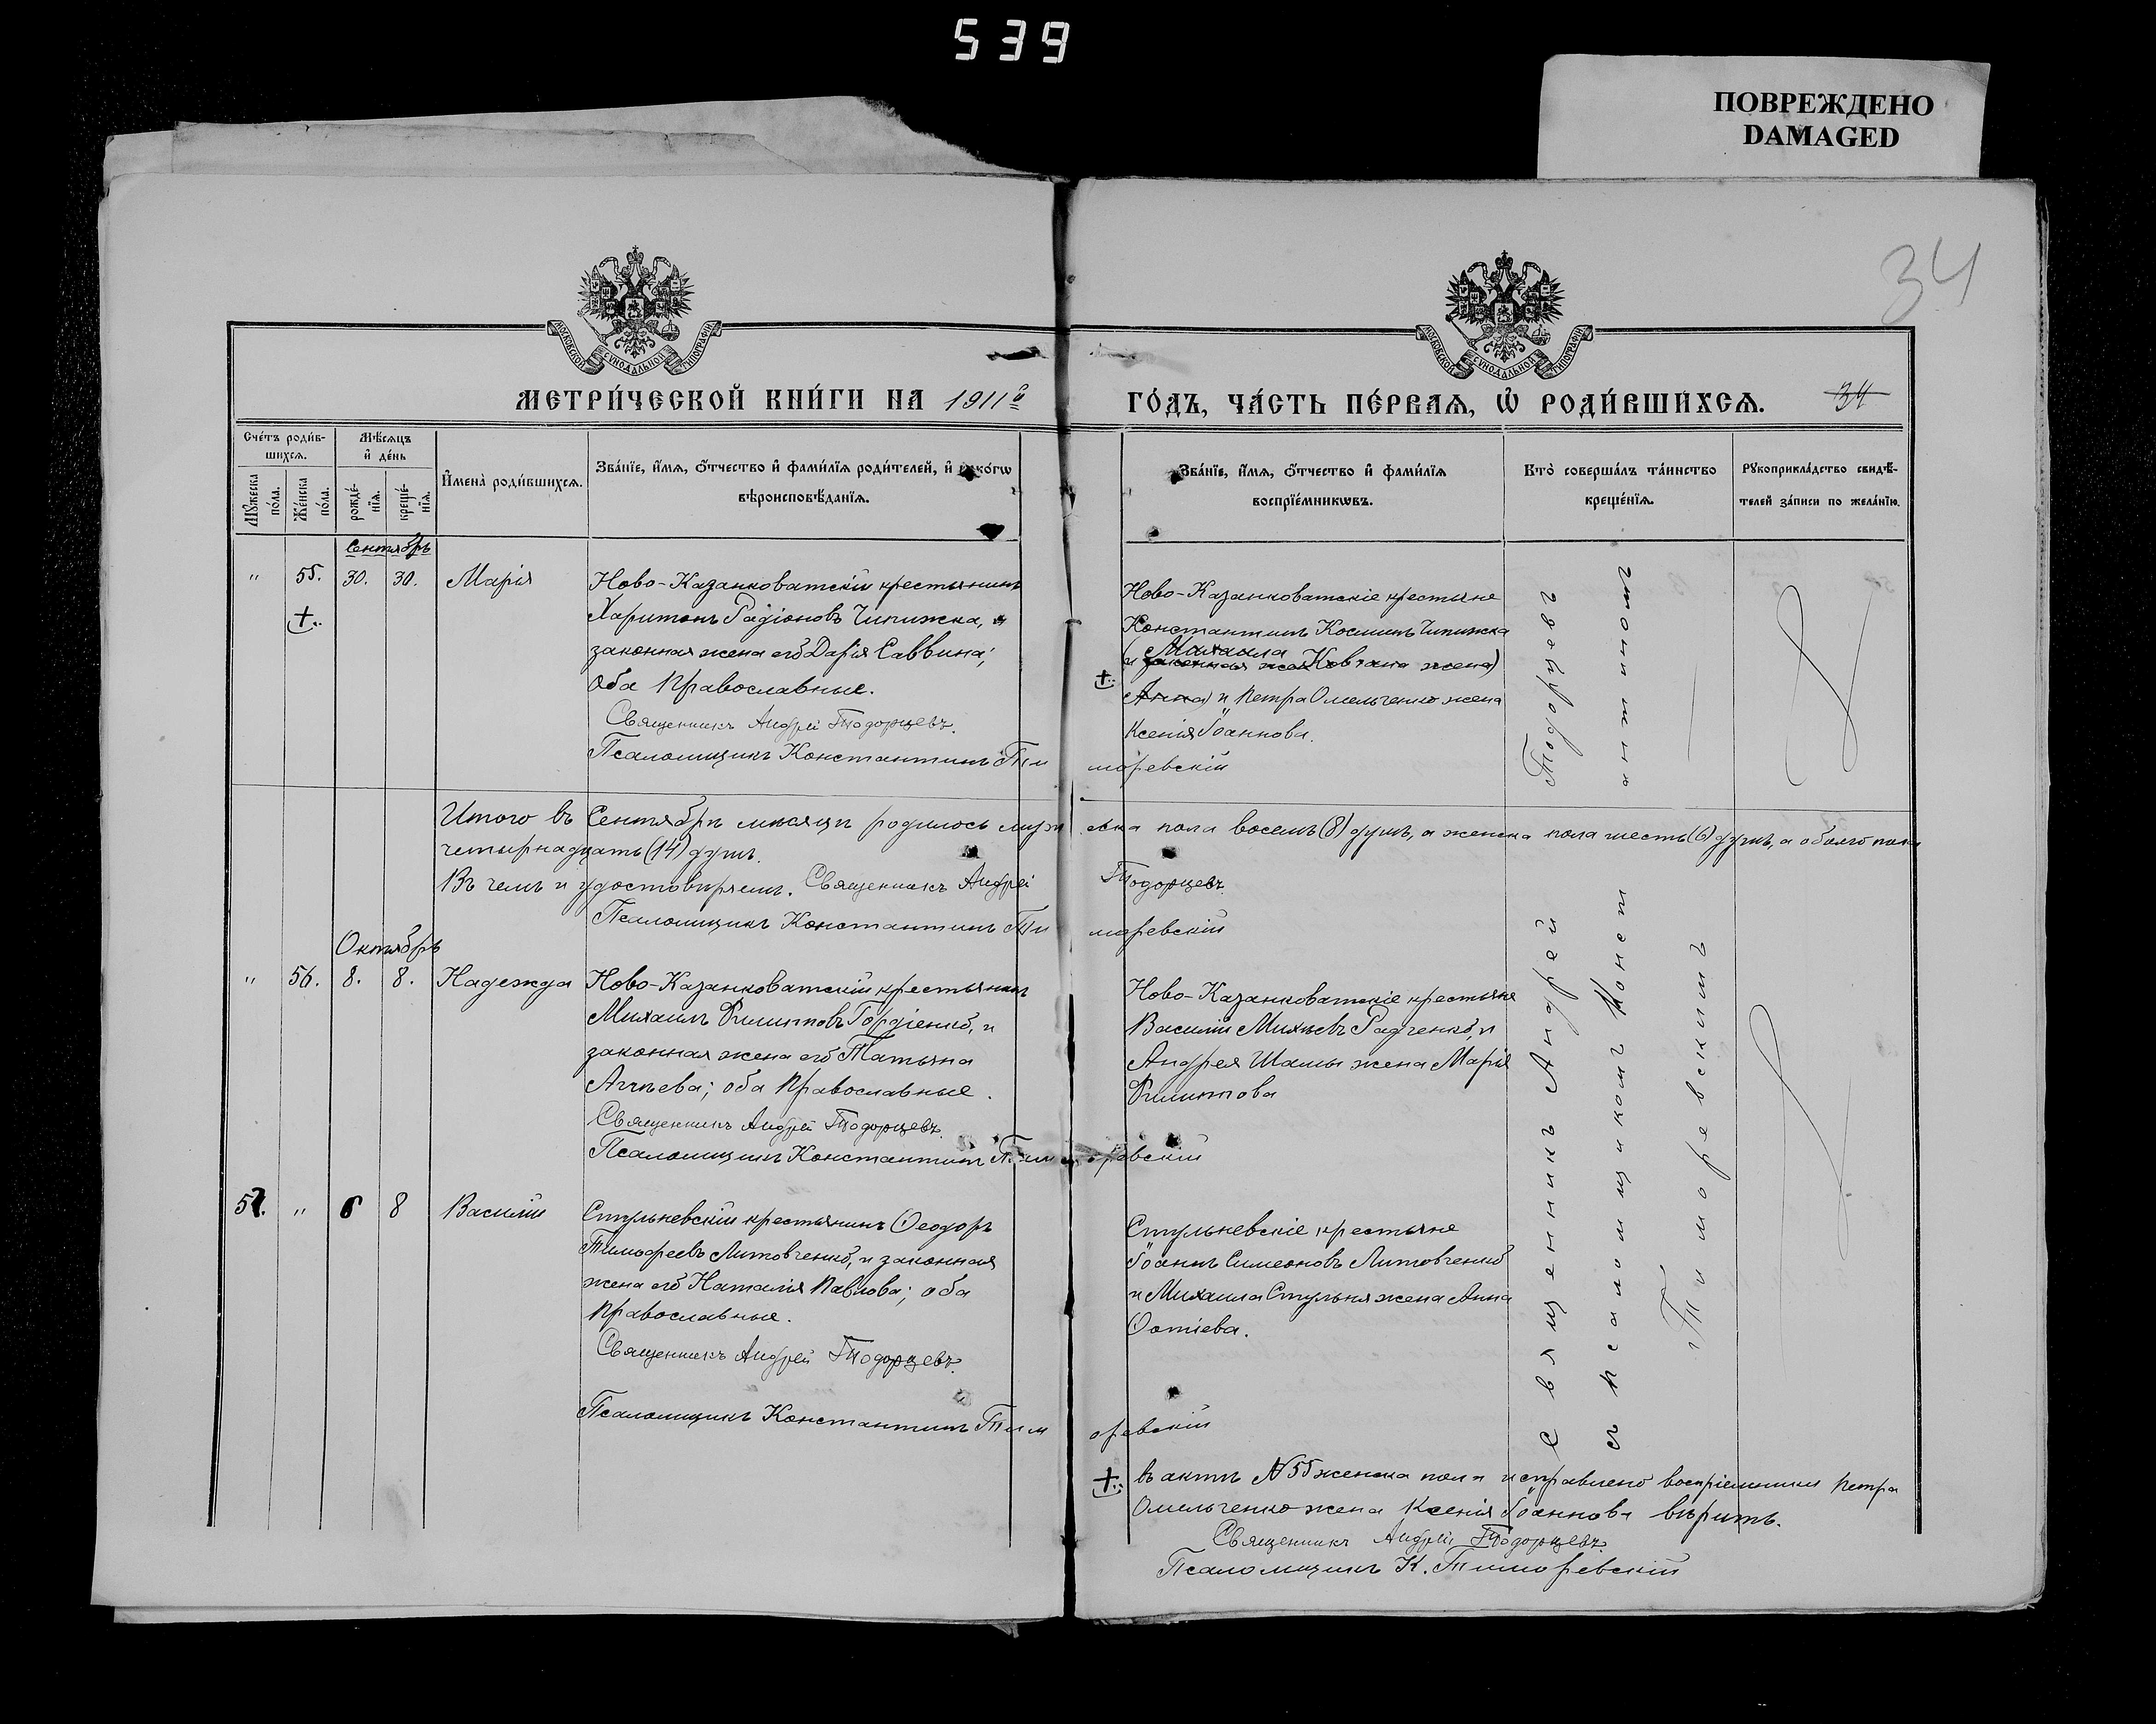 539
ПОВРЕЖДЕНО
DAMAGED
34
МОСКОВСКОЙ СѴНОДАЛЬНОЙ ТИПОГРАФІИ
МОСКОВСКОЙ СѴНОДАЛЬНОЙ ТИПОГРАФІИ
МЕТРИ́ЧЕСКОЙ КНИ́ГИ НА 1911й
ГО́ДЪ, ЧА́СТЬ ПЕ́РВАЯ, Ѡ҆ РОДИ́ВШИХСЯ. 34
Сче́тъ роди́вшихся.
Мꙋ́жеска по́ла.
Же́нска по́ла.
Мѣ́сяцъ и҆ де́нь
рожде́нїя.
креще́нїя.
И҆мена̀ роди́вшихся.
Зва́нїе, и҆́мя, ѻ҆́тчество и҆ фами́лїя роди́телей, и҆ како́гѡ
вѣроисповѣ́данїя.
Зва́нїе, и҆́мя, ѻ҆́тчество и҆ фами́лїя
воспрїе́мникѡвъ.
Кто̀ соверша́лъ та́инство
креще́нїя.
Рꙋкоприкла́дство свидѣ́-
телей за́писи по жела́нїю.
Сентябрь
" 55. 30. 30. Марія
Ново-Казанковатскій крестьянинъ
Харитонъ Радіоновъ Чипижка, и
законная жена его Дарія Саввина;
Оба Православные.
Священникъ Андрей Тодорцевъ.
Псаломщикъ Константинъ Тиморевскій
Ново-Казанковатскіе крестьяне
Константинъ Косминъ Чипижка
Михаила
(и законная жена Ковтана жена)
Анна) и Петра Омельченко жена
Ксенія Іоаннова.
Итого въ Сентябрѣ мѣсяцѣ родилось мужеска пола восемь (8) душъ, а женска пола шесть (6) душъ, а обоего пола
четырнадцать (14) душъ.
Въ чемъ и удостовѣряемъ. Священникъ Андрей Тодорцевъ.
Псаломщикъ Константинъ Тиморевскій
Октябрь
" 56. 8. 8. Надежда
Ново-Казанковатскій крестьянинъ
Михаилъ Филипповъ Гордіенко, и
законная жена его Татьяна
Аггѣева; оба Православные.
Священникъ Андрей Тодорцевъ.
Псаломщикъ Константинъ Тиморевскій
Ново-Казанковатскіе крестьяне
Василій Михѣевъ Радченко, и
Андрея Шамы жена Марія
Филиппова
57. " 6 8 Василій
Стульневскій крестьянинъ Ѳеодоръ
Тимофеевъ Литовченко, и законная
жена его Наталія Павлова; оба
Православные.
Священникъ Андрей Тодорцевъ.
Псаломщикъ Константинъ Тиморевскій
Стульневскіе крестьяне
Іоаннъ Симеоновъ Литовченко
и Михаила Стульня жена Анна
Фотіева.
Священникъ Андрей Тодорцевъ
съ псаломщикомъ Константиномъ
Тиморевскимъ
въ актѣ № 55 женска пола исправлено воспріемники Петра
Омельченко жена Ксенія Іоаннова вѣрить.
Священникъ Андрей Тодорцевъ.
Псаломщикъ К. Тиморевскій